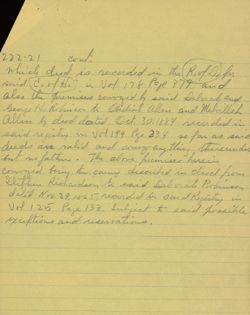 222-21 cont.
Which deed is recorded in the (R of D) for
said (C. of H.) in Vol 178 Page 979 and
also the premises conveyed by said Deborah and
George W. Robinson to Obediah Allen and Mehitable
Allen by deed dated Oct. 30, 1884 recorded in
said registry in Vol 199 Page 234 so far as said
deeds are valid and convey anything thereunder
but no farther. The above premises herein
conveyed being the same described in deed from
Stephen Richardson to said Deborah Robinson
dated Nov. 29, 1865, recorded in said Registry in
Vol 125 Page 133. Subject to said possible
exceptions and reservations.